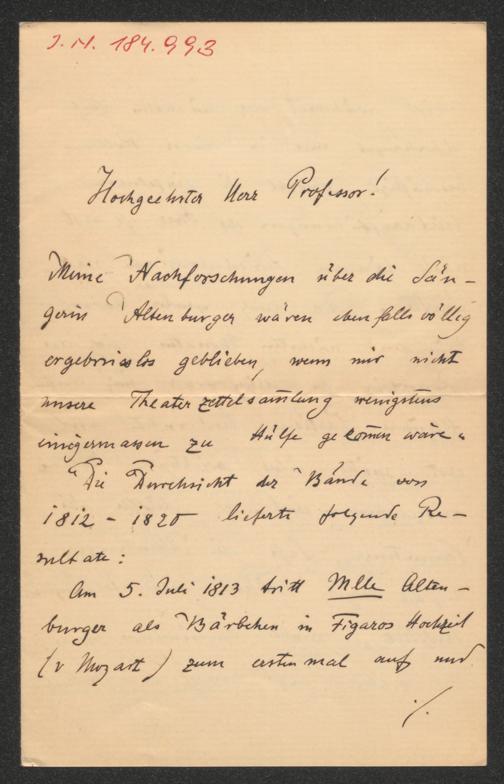 J.N. 184.993
Hochgeehrter Herr Professor!
Meine Nachforschungen über die Sän-
gerin Altenburger wären ebenfalls völlig
ergebnisslos geblieben, wenn mir nicht
unsere Theaterzettelsam̅lung wenigstens
einigermassen zu Hülfe geko̅men wäre.
Die Durchsicht der Bände von
1812 - 1820 lieferte folgende Re-
sultate:
Am 5. Juli 1813 tritt Mlle Alten-
burger als Bärbchen in Figaros Hochzeit
(v Mozart) zum erstenmal auf und
./.